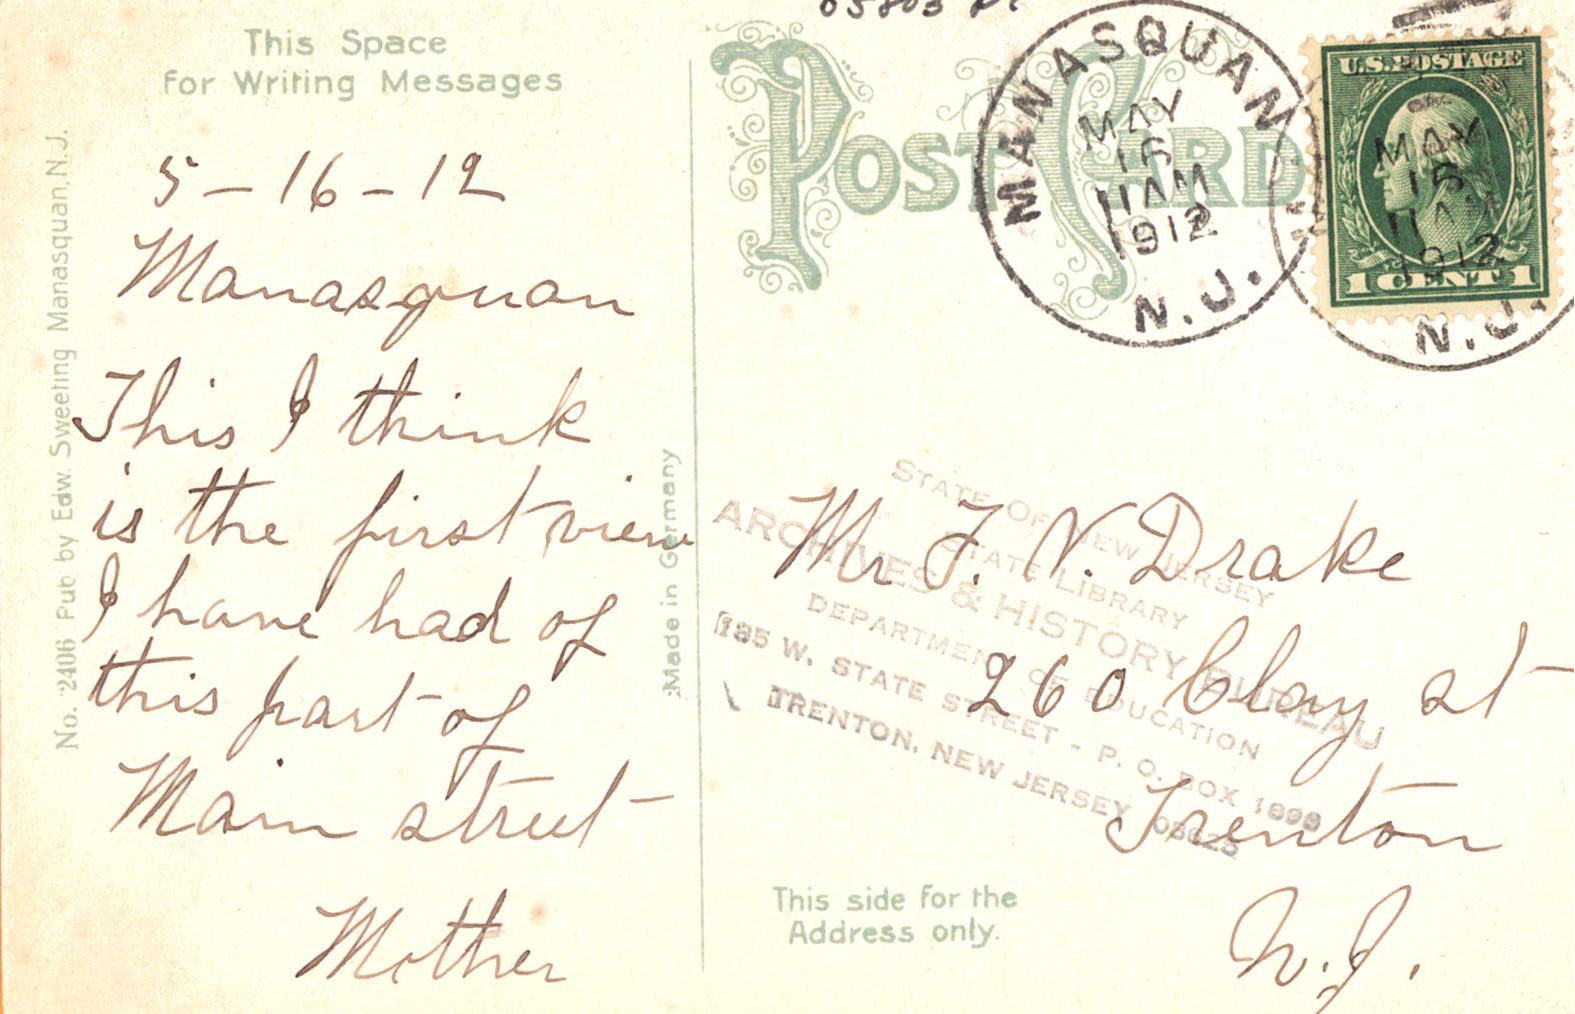 This Space
for Writing Messages
5-16-12
Manasquan
This I think
is the first view
I have had of
this part of
Main street
Mother
No. 2406 Pub by Edw. Sweeting Manasquan, N.J.
Made in Germany
POST CARD
MANASQUAN
MAY
16
11AM
1912
N.J.
U.S. POSTAGE
1 CENT 1
MAY
16
11AM
1912
N.J.
Mr F. N. Drake
260 Clay st
Trenton
N.J.
STATE OF NEW JERSEY
STATE LIBRARY
ARCHIVES & HISTORY BUREAU
DEPARTMENT OF EDUCATION
185 W. STATE STREET - P. O. BOX 1898
TRENTON, NEW JERSEY 08625
This side for the
Address only.